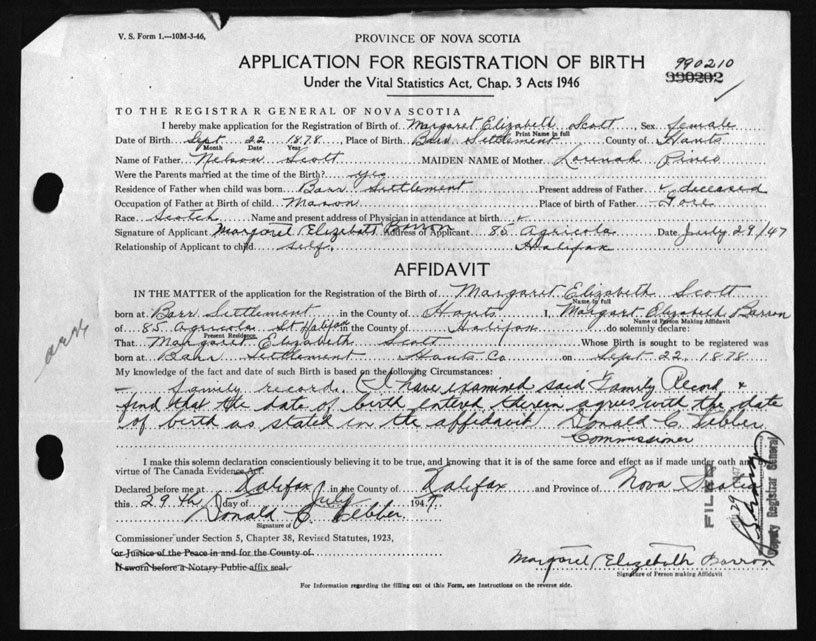 V. S. Form 1.—10M-3-46,
PROVINCE OF NOVA SCOTIA
APPLICATION FOR REGISTRATION OF BIRTH 990210
Under the Vital Statistics Act, Chap. 3 Acts 1946 990202
TO THE REGISTRAR GENERAL OF NOVA SCOTIA
I hereby make application for the Registration of Birth of Margaret Elizabeth Scott, Sex female
Print Name in full
Date of Birth Sept. 22 1878 Place of Birth Barr Settlement County of Hants
Month Date Year
Name of Father Nelson Scott MAIDEN NAME of Mother Lorenah Pineo
Were the Parents married at the time of the Birth? yes
Residence of Father when child was born Barr Settlement Present address of Father deceased
Occupation of Father at Birth of child Mason Place of birth of Father Gore
Race Scotch Name and present address of Physician in attendance at birth
Signature of Applicant Margaret Elizabeth Barron Address of Applicant 85 Agricola Date July 29/47
Relationship of Applicant to child self. Halifax
AFFIDAVIT
IN THE MATTER of the application for the Registration of Birth of Margaret Elizabeth Scott
Name in full
born at Barr Settlement in the County of Hants I, Margaret Elizabeth Barron
Name of Person Making Affidavit
of 85 Agricola St Halifax in the County of Halifax do solemnly declare:
Present Residence
That Margaret Elizabeth Scott Whose Birth is sought to be registered was
born at Bahr Settlement Hants Co on Sept. 22, 1878
My knowledge of the fact and date of such Birth is based on the following Circumstances:
— family record. (I have examined said Family Record &
find that the date of birth entered therein agrees with the date
of birth as stated in the affidavit) Donald C. Webber
Commissioner
I make this solemn declaration conscientiously believing it to be true, and knowing that it is of the same force and effect as if made under oath and
virtue of The Canada Evidence Act.
Declared before me at Halifax in the County of Halifax and Province of Nova Scotia
this 29th day of July 1947
Donald C. Webber
Signature of
Commissioner under Section 5, Chapter 38, Revised Statutes, 1923,
or Justice of the Peace in and for the County of
If sworn before a Notary Public affix seal.
Margaret Elizabeth Barron
Signature of Person making Affidavit
For Information regarding the filling out of this Form, see Instructions on the reverse side.
FILED
Deputy Registrar General